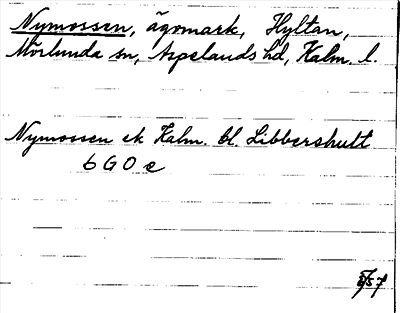 Nymossen, ägomark, Hyltan,
Mörlunda sn, Aspelands hd, Kalm. l.
Nymossen ek Kalm. bl. Libbershult
6 G O e